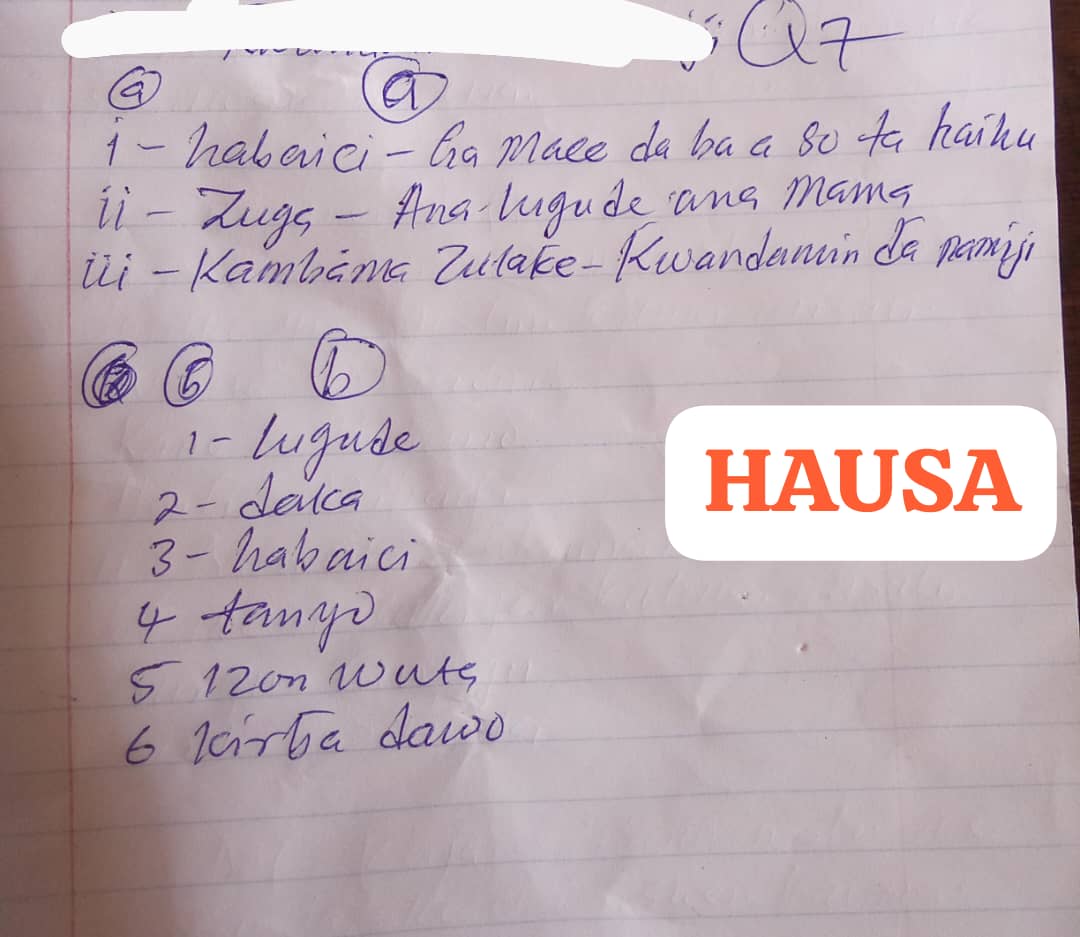 Q7
a a
i - habaici - Ga mace da ba a so ta haihu
ii - Zuga - Ana lugude ana mama
iii - Kambáma Zulaƙe - Kwandamin ɗa namiji
b b
1 - lugude
2 - daka
3 - habaici
4 tanyo
5 izon wuta
6 kirɓa dawo
HAUSA